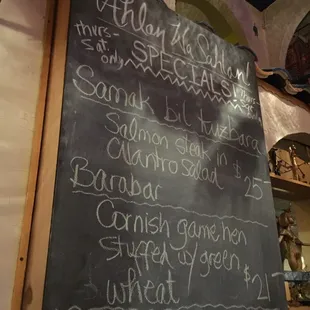 Ahlan Wa Sahlan!
thurs-
Sat.
only
SPECIALS
Samak bil kuzbara
Salmon steak in
cilantro salad $25
Barabar
Cornish game hen
stuffed w/ green
wheat $21